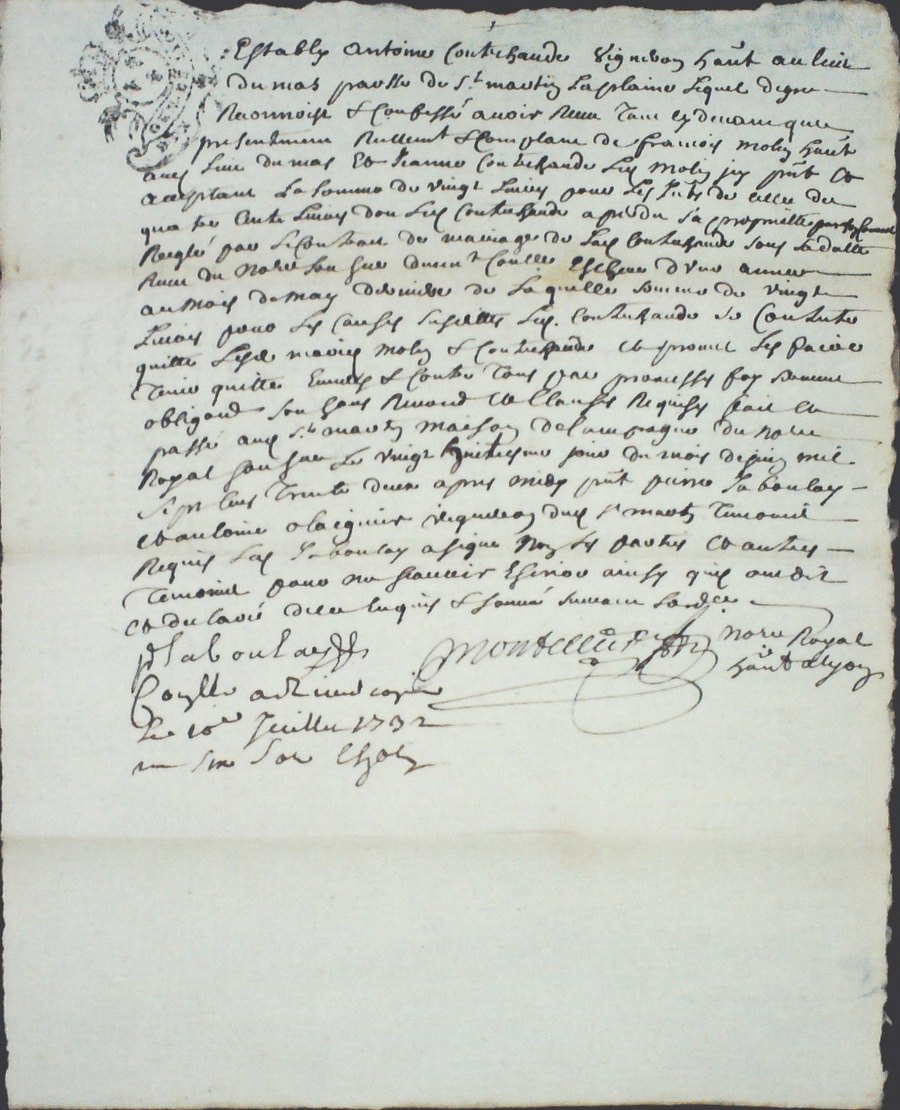 Establȳ antoine Coutechaude vigneron hãnt au lieu
du mas parsse de St martin la plaine lequel de gre
Reconnoist & Confessé avoir Receu tant cy devant que
presentement Reellemt & Comptant de francois moly hãnt
aud lieu du mas Et Jeanne Coutechaude les moly icy pñt Et
acceptant La somme de vingt Livres pour les de celle de
quatre cents Livres don led Coutechaude a perdu sa propriette
Reglé par le Contract de mariage de lad Coutechaude sous sa datte
Receu du Nore sousne duemt Conlle Escheue d'une année
au mois de may dernier de laquelle somme de vingt
Livres pour les Causes susdittes led. Coutechaude se Contente
quitte lesd mariez moly & Coutechaude Et promet les faire
tenir quitte Envers & Contre tous par promesses foy serment
obligaōn soubmons Renonōn Et Clauses Requises fait Et
passé aud St martin maison de Campagne du Nore
Royal sousne Le vingt huitiesme jour du mois de juin mil
sept Cens trente deux apres midy pñt pierre Jaboulay
Et antoine vigneron dud St martin temoins
Requis Led Jaboulay a signé Non les parties Et autres
temoins pour ne sçavoir Escrire ainsy quils ont dit
Et declaré de ce Enquis & sommé suivant lord.ce
P Jaboulay
Montellier Nore Royal
hãnt
Conlle a
Le 10e Juillet 1732
six sols